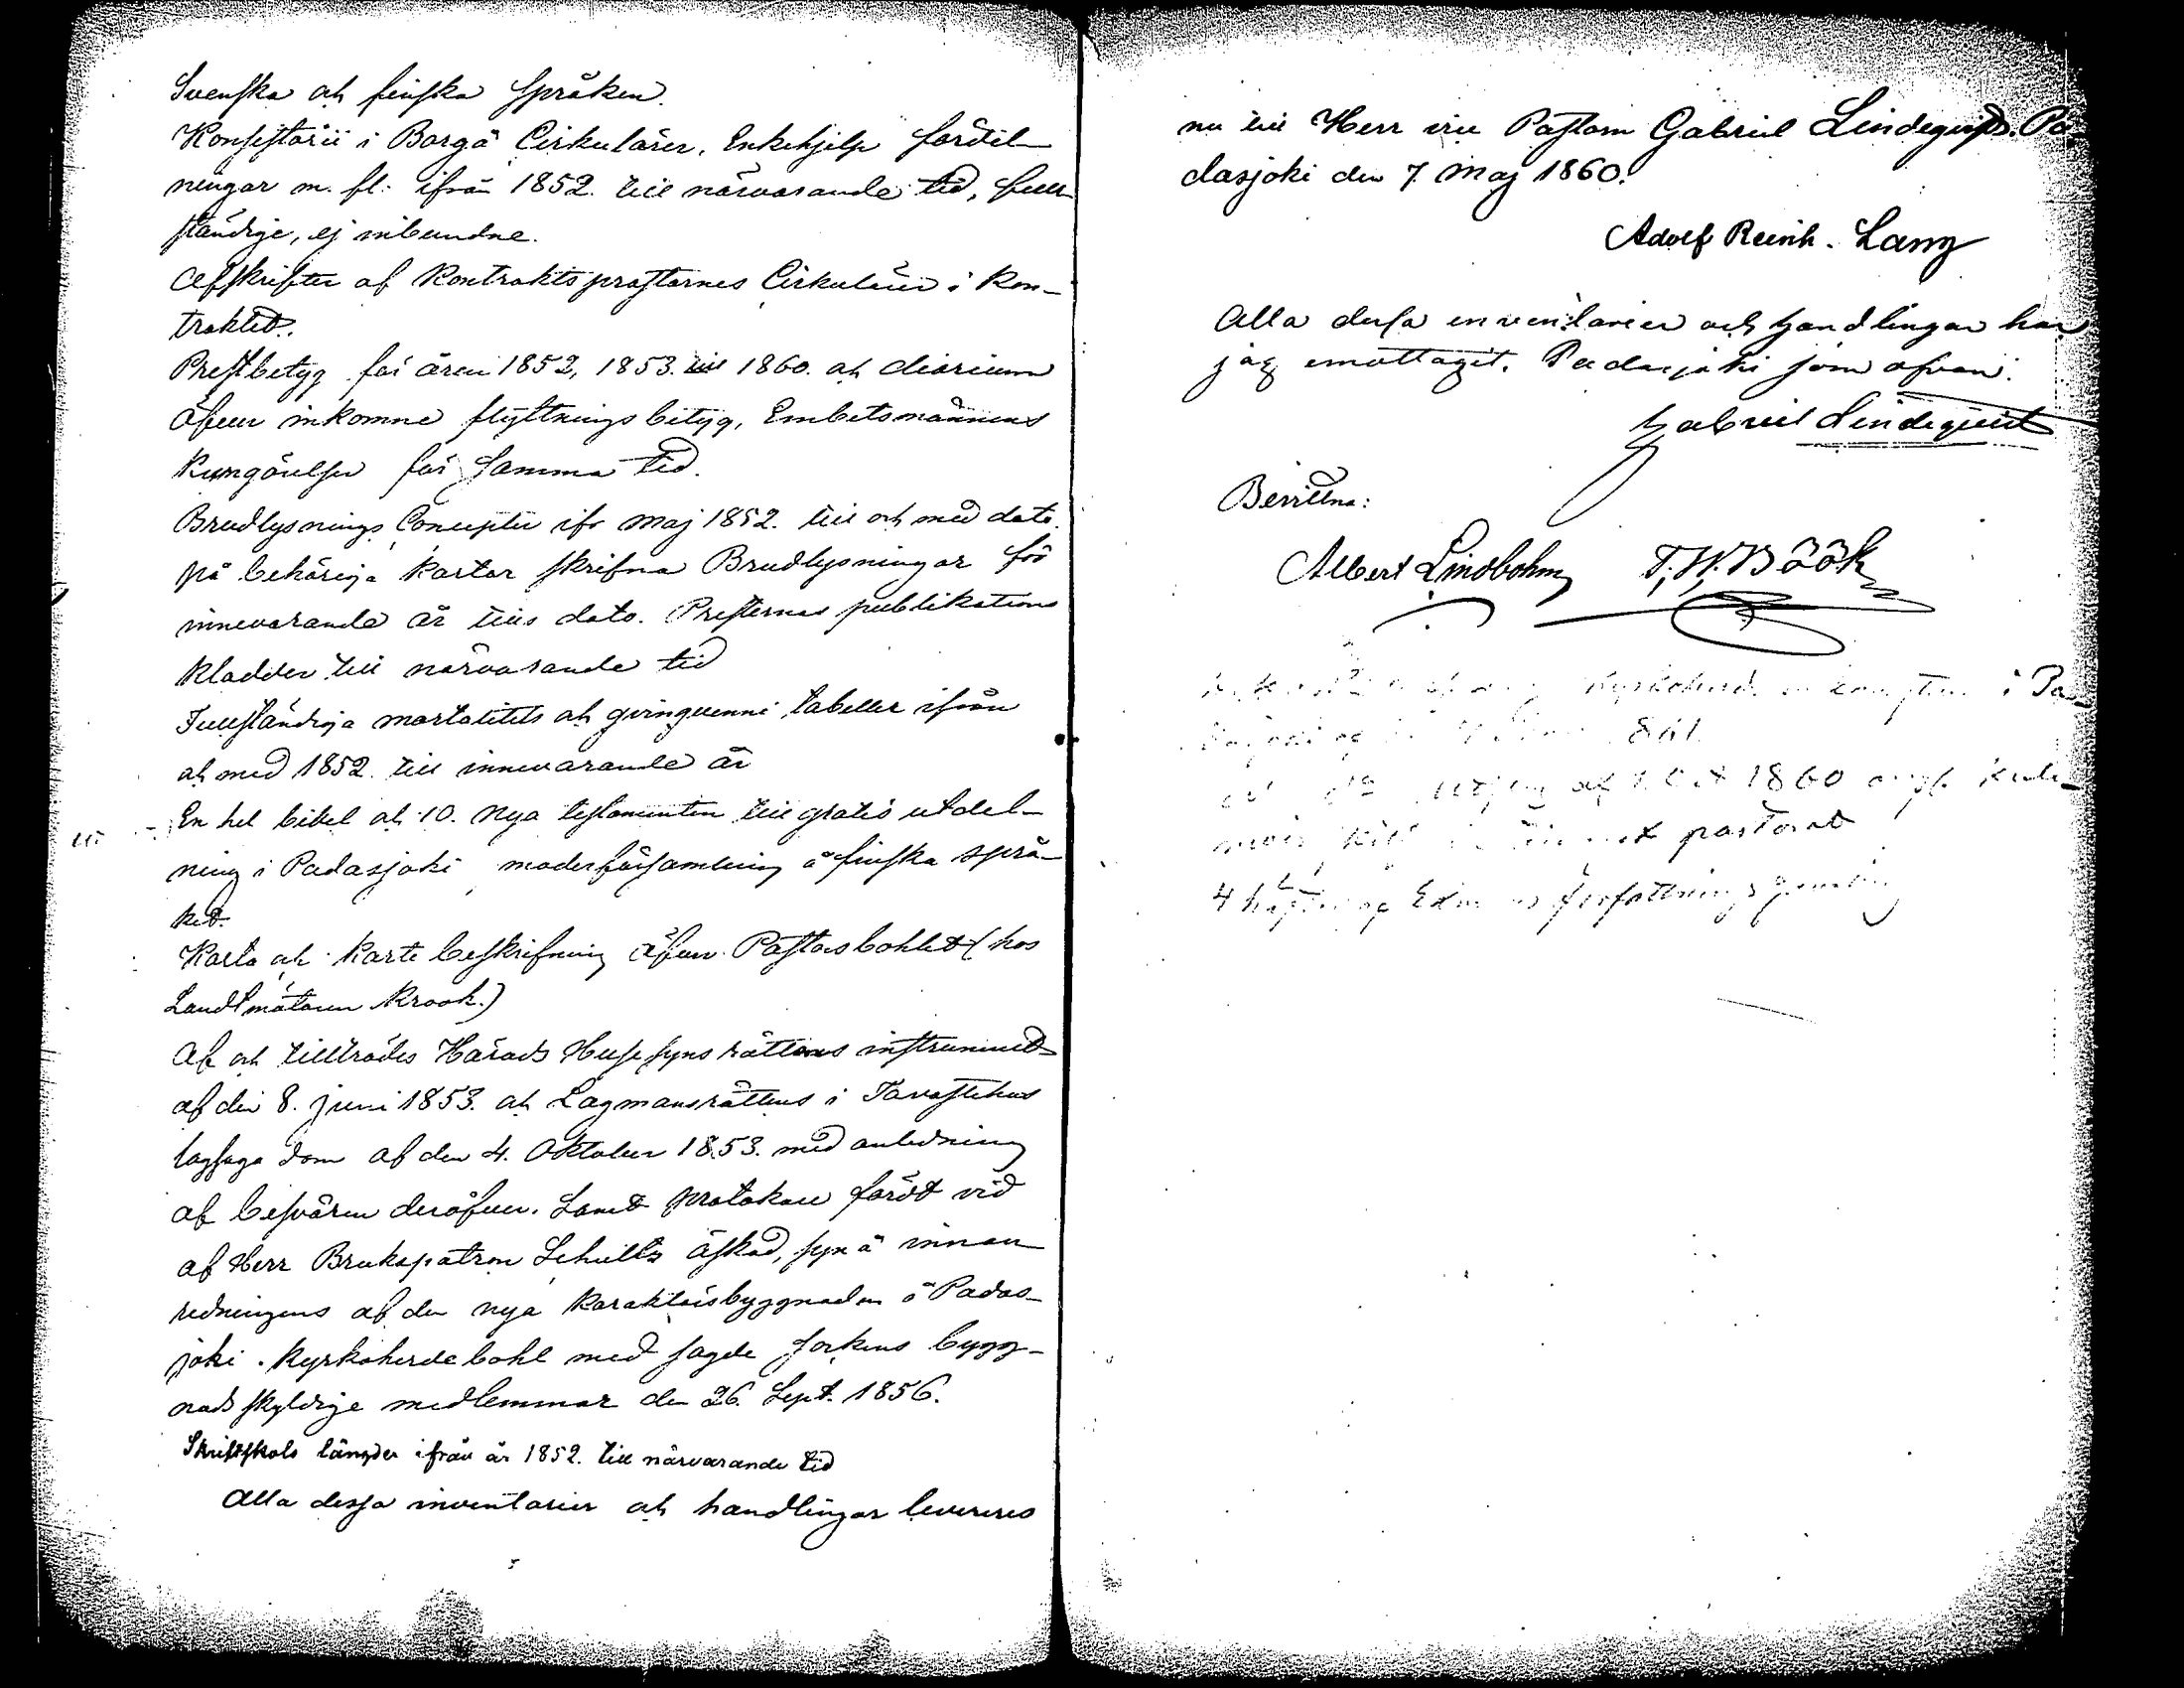 Svenska och finska språken.
Konsistorii i Borgå Cirkulärer, Enkehjelps fördel-
ningar m. fl. ifrån 1852. till närvarande tid, full-
ständige, ej inbundne.
Afskrifter af Kontraktsprostarnes Cirkulärer i Kon-
traktet.
Prestbetyg för åren 1852, 1853. till 1860. och diarium
öfver inkomne flyttningsbetyg, Embetsmännens
Kungörelser för samma tid.
Brudlysnings Concepter ifr maj 1852. till och med dato.
på behöriga kartor skrifna Brudlysningar för
innevarande år tills dato. Presternas publikations
kladder till närvarande tid
Fullständiga mortalitets och qvinquenni tabeller ifrån
och med 1852. till innevarande år
En hel bibel och 10. nya testamenten till gratis utdel-
ning i Padasjoki moderförsamling å finska språ-
ket.
Karta och Karte beskrifning öfver Pastorsbohlet (hos
Landtmätaren Krook.)
Af och tillträdes Härads Husesyns rättens instrument
af den 8. juni 1853. och Lagmansrättens i Tavastehus
lagsaga dom af den 4. Oktober 1853. med anledning
af besvären deröfver. Samt protokoll fördt vid
af Herr Brukspatron Schultz äskad, syn å innan
redningens af den nya karaktersbyggnaden å Padas-
joki Kyrkoherdebohl med sagde sockens bygg-
nads skyldige medlemmar den 26. Sept. 1856.
Skriftskols längder ifrån år 1852. till närvarande tid
Alla dessa inventarier och handlingar levereres
nu till Herr vice Pastorn Gabriel Lindequist. Pa-
dasjoki den 7. Maj 1860.
Adolf Reinh. Lang
Alla dessa inventarier och handlingar har
jag emottagit. Padasjoki som ofvan.
Gabriel Lindequist
Bevittna:
Albert Lindbohm T. W. Böök
i Pa-
1861.
af 1860 angf.
pastorat
4 författnings